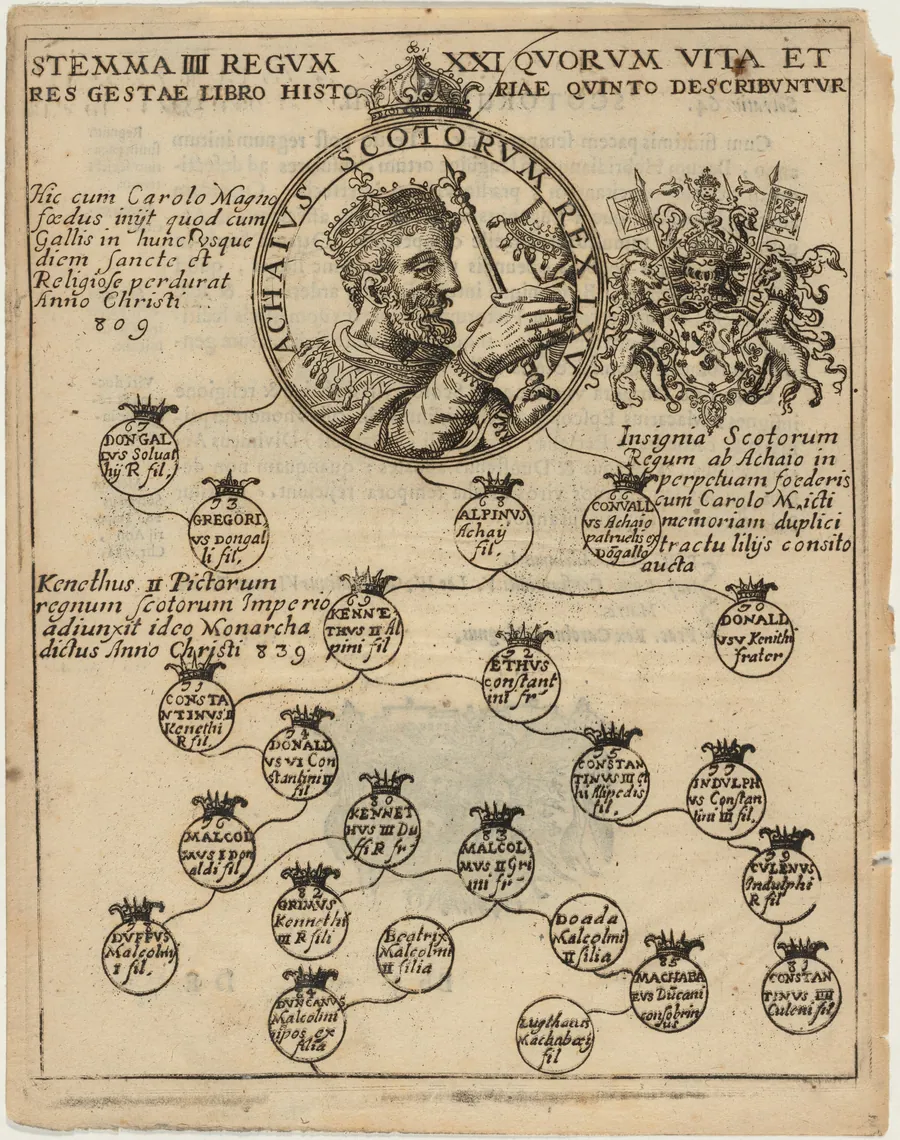 STEMMA IIII REGVM XXI QVORVM VITA ET
RES GESTAE LIBRO HISTORIAE QVINTO DESCRIBVNTVR
ACHAIVS SCOTORVM REX LXV
Hic cum Carolo Magno
fœdus inijt quod cum
Gallis in hunc usque
diem sancte et
Religiose perdurat
Anno Christi
809
Insignia Scotorum
Regum ab Achaio in
perpetuam foederis
cum Carolo M. icti
memoriam duplici
tractu lilijs consito
aucta
67
DONGAL
LVS Soluat
hij R fil.
73
GREGORI
VS Dongal
li fil.
68
ALPINVS
Achaij
fil.
66
CONVALL
VS Achaio
patruelis ex
Dōgallo
Kenethus II Pictorum
regnum scotorum Imperio
adiunxit ideo Monarcha
dictus Anno Christi 839
69
KENNE
THVS II Al
pini fil
70
DONALD
VSV Kenithi
frater
72
ETHVS
constant
ini fr
71
CONSTA
NTINVS II
Kenethi
R fil
74
DONALD
VS VI Con
stantini II
fil
75
CONSTAN
TINVS III et
hi Alipedis
fil.
77
INDVLPH
VS Constan
tini III fil.
76
MALCOL
MVS I Don
aldi fil.
80
KENNET
HVS III Du
ffi R fr
83
MALCOL
MVS II Gri
mi fr
79
CVLENVS
Indulphi
R fil
78
DVFFVS
Malcolmi
I fil.
82
GRIMVS
Kennethi
III R fili
Beatrix
Malcolmi
II filia
Doada
Malcolmi
II filia
85
MACHABA
EVS Dūcani
consobrin
us
81
CONSTAN
TINVS IIII
Culeni fil
84
DVNCANVS
Malcolmi
nipos ex
filia
Lugthatus
Machabæij
fil